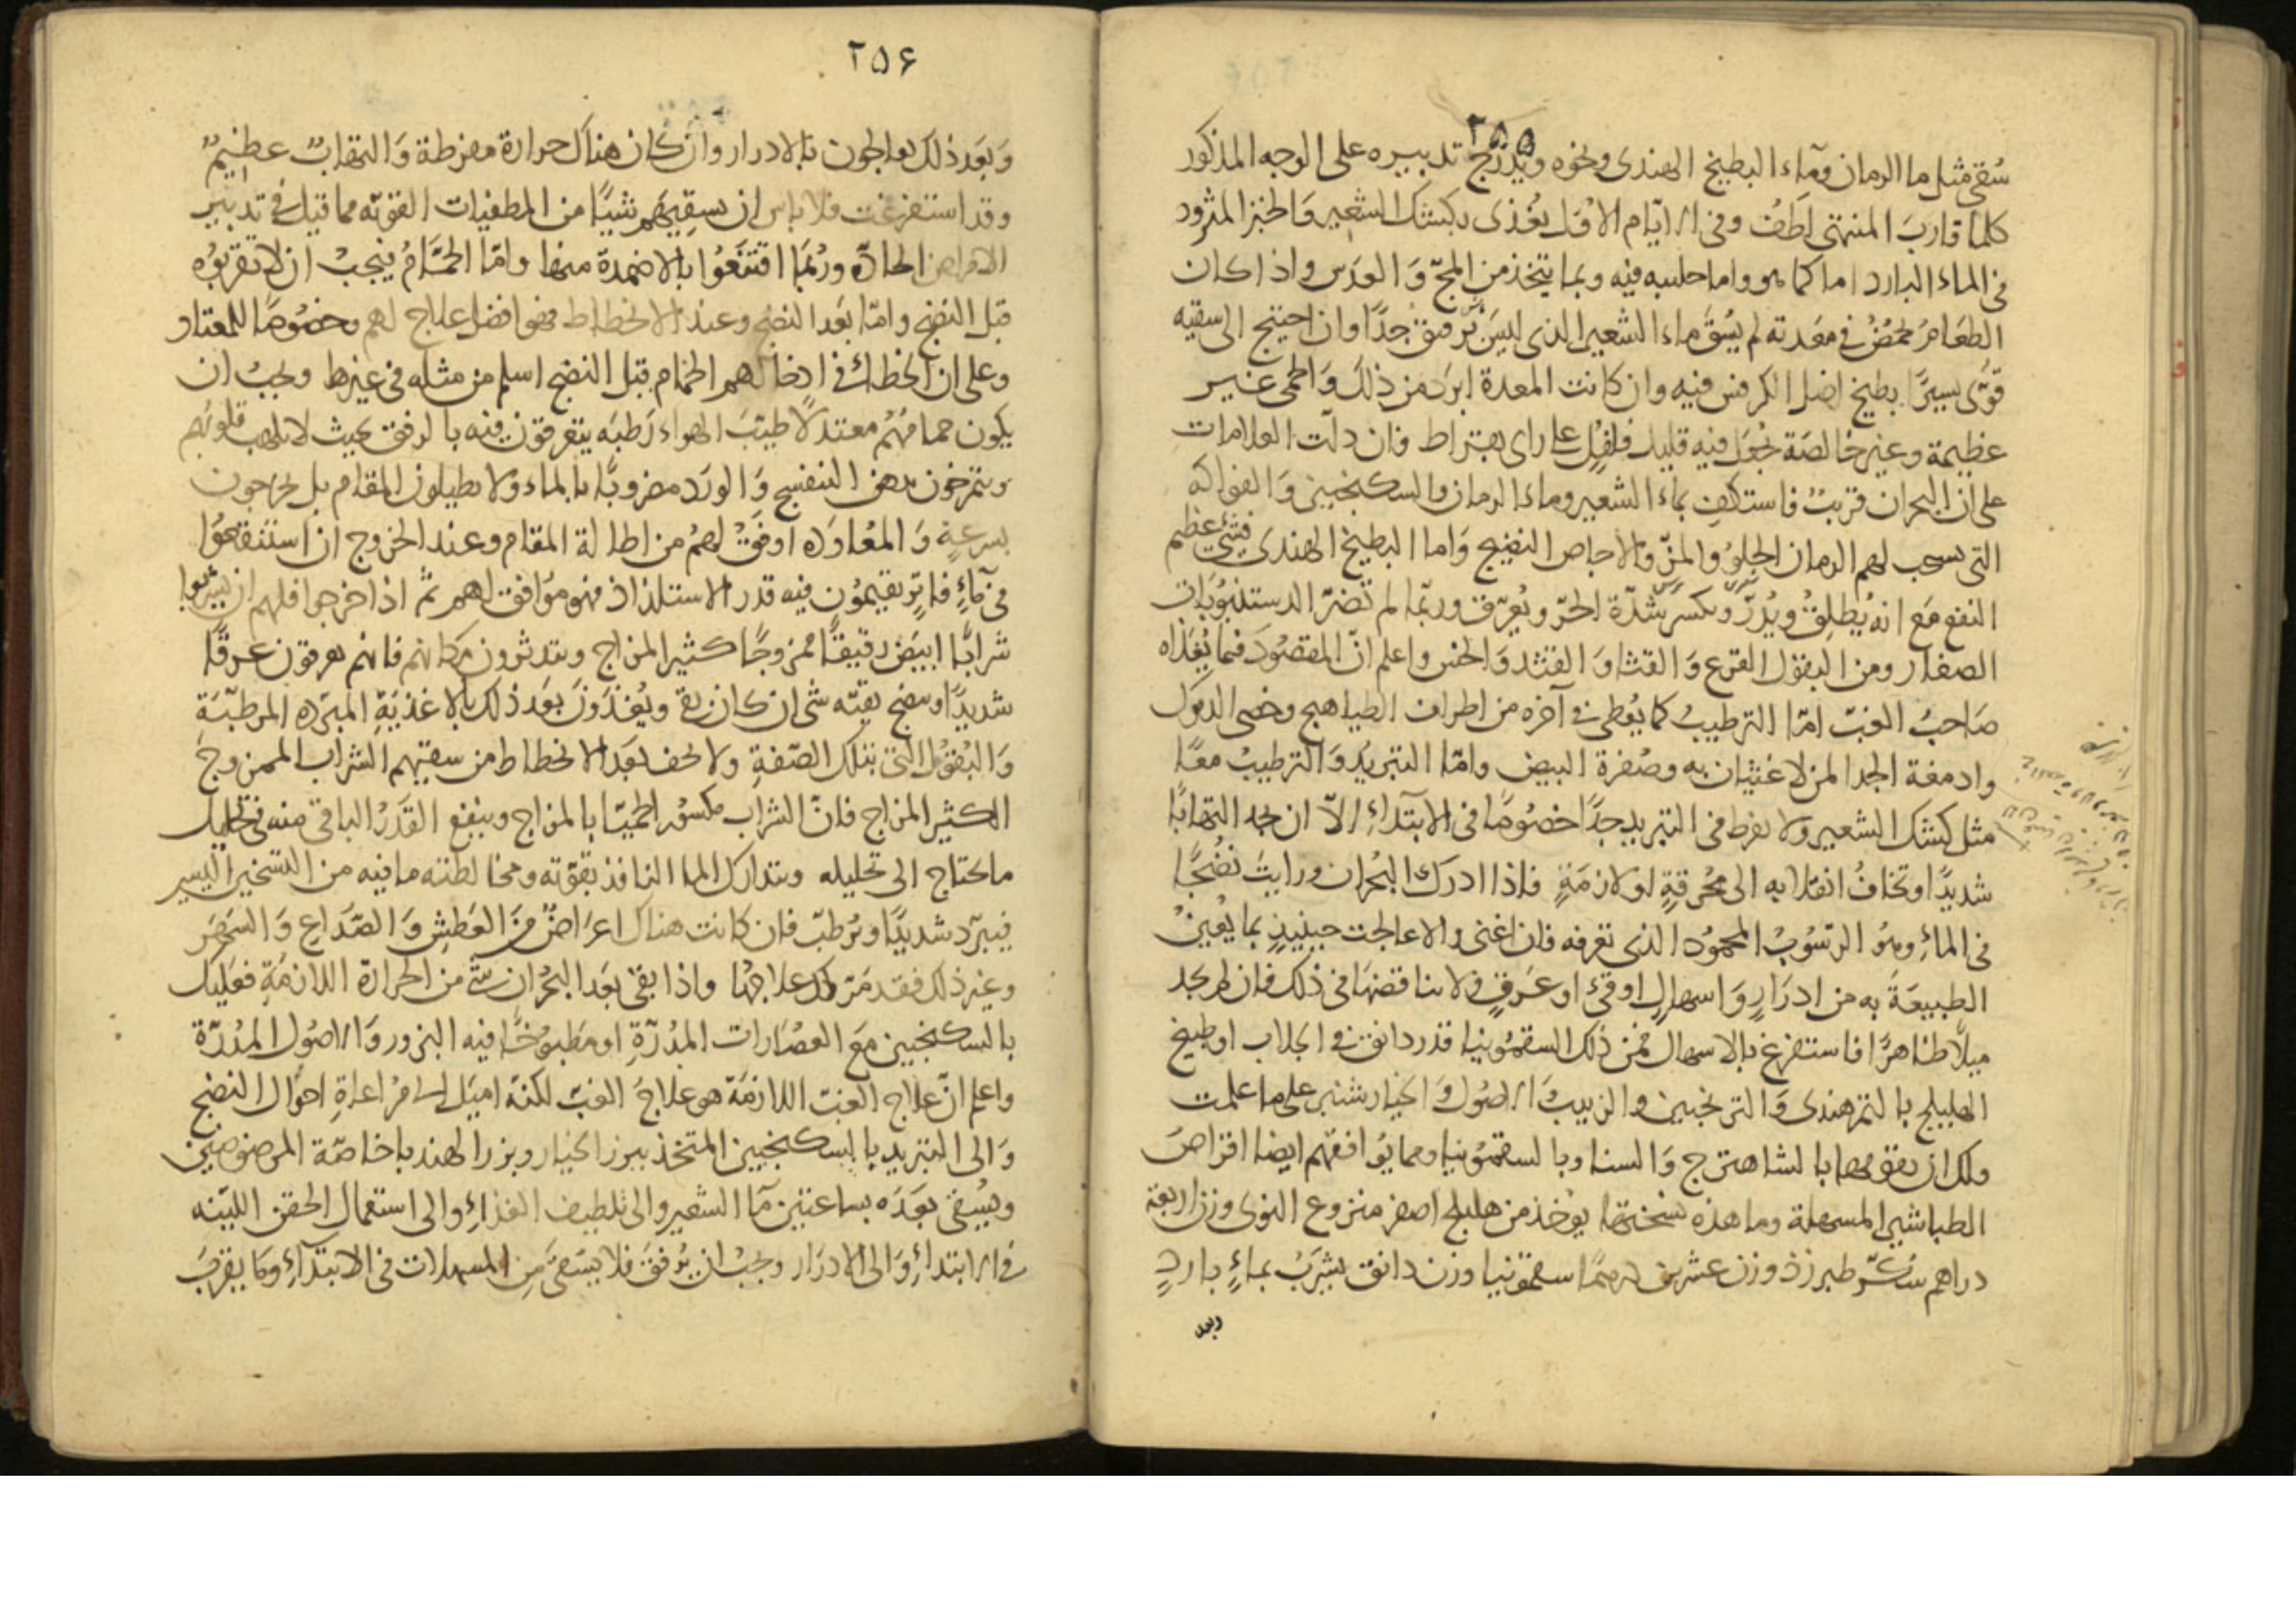 ٢٥٥
سُقى مثل ما الرمان وماء البطيخ الهندى ونحوه ويُدرّج تدبيره على الوجه المذكور
كلما قاربَ المنتهى لطفُ وفى الايّام الاوُل يغُذى بكشك الشعير وَالخبز المثرود
فى الماء البارد اما كما هو واما حليبه فيه وبما يتخذ من المجّ وَالعدَس واذا كان
الطعَامُ يحمُضُ فى معَدته لم يسُقَ ماء الشعير الذى ليسَ برقيق جدًا وان احتيج الى سقيه
قوّى يسيرًا بطبيخ اصل الكرفس فيه وان كانت المعدة ابرَد من ذلكَ وَالحمى غير
عظيمة وغير خالصَة جُعل فيه قليل فلفل على راى بقراط فان دلت العلامات
على ان البحران قريبٌ فاستكفِ بماء الشعير وماء الرمان والسكنجبين وَالفواكه
التى تستحب لهم الرمان الحلوُ والمزّ والاجاص النضيج وَاما البطيخ الهندى فشئ عظيم
النفع مَع انه يُطلِقُ ويُدرّ ويكسر شدّة الحرّ ويُعرّق وربّما لم تضرّ الدستنبوُيات
الصغار ومن البقول القرع وَالقثا وَالقثد وَالخس واعلم انّ المقصُودَ فيما يُغذاه
صَاحبُ الغبّ امّا الترطيبُ كما يعُطى فى آخره من اطراف الطياهيج وخصى الديوَك
وادمغة الجدا لمن لا غثيان به وصُفرة البيض وامّا التبريدُ وَالترطيبُ معًا
مثل كشك الشعير ولا يفرط فى التبريد جدًا خصُوصًا فى الابتداءِ الاّ ان يجد التهابًا
شديدًا وتخافُ انقلابه الى محُرقةٍ او لازمَةٍ فاذا ادرك البُحران ورايتَ نضُجًا
فى الماءِ وهوُ الرسُوبُ المحموُد الذى تعرفه فان اغنى والا عالجت حينيذٍ بما يعُينُ
الطبيعَة به من ادرَارٍ وَاسهالٍ او قئ او عَرقٍ ولا يناقضَها فى ذلك فان لم يجد
ميلاً ظاهرًا فاستفرغ بالاسهال فمن ذلك السقموُنيا قدر دانق فى الجلاب او طبيخ
الهليلج بالتمر هندى وَالترنجبين والزبيبَ الاصُول وَالخيار شنبر على ما علمت
ولك ان يقويهَا بالشاهترج وَالسنا وبالسقموُنيا ومما يوُافقهم ايضا اقراصَ
الطباشير المسهلة وما هذه نسُختها يوُخذ من هليلج اصفر منزوع النوى وزن اربعة
دراهم سكّر طبرزذ وزن عشرين درهمًا سقموُنيا وزن دانق يشربُ بماءٍ باردٍ
وبعد
٢٥۶
وَبعَد ذلك يعالجون بالادرار وان كان هناك حرارة مفرطة وَالتهابٌ عظيمٌ
وقد استفرغت فلا باس ان يسقيهَم شيئًا من المطفيات القويّه مما قيل فى تدبيرَ
الامراض الحادّة وربُمَا اقتنعَوُا بالاضمدة منها وامّا الحمّامُ فيجبُ ان لا تقربوُه
قبل النضج وامّا بعَد النضج وعند الانحطاط فهو افضل علاج لهم وخصُوصًا للمعتاد
وعلى ان الخطاء فى ادخالهم الحمّام قبل النضج اسلم من مثله فى غيرها ويجبُ ان
يكون حمامهُم معتدلًا طيبَ الهواء رَطبَه يتعرقون فيه بالرفق بحيث لا يلهب قلوبُهم
ويتمرخون بدهن البنفسج وَالورَد مضروبًا بالماء ولا يطيلون المقام بل يخرجون
بسرعةٍ وَالمعُاودَه اوفقُ لهمُ من اطالة المقام وعند الخروج ان استنقعوُا
فى ماءٍ فاترٍ يقيموُن فيه قدر الاستلذاذ فهو موُافق لهم ثمّ اذا خرجوا فلهم ان يشربوا
شرابًا ابيَض رقيقًا ممزوجًا كثير المزاج ويتدثرون مكانهم فانهم يعرقون عرقًا
شديدًا وينضج بقيّه شى ان كان بقى ويُغذَونَ بعَد ذلك بالاغذيَةِ المبَردِه المرطبّة
وَالبُقوُل التى بتلك الصّفةِ ولا تخف بعَد الانحطاط من سقيهم الشراب الممزوجَ
الكثير المزاج فانّ الشراب مكسوُر الحميّا بالمزاج وينفع القَدَرُ الباقى منه فى تحليل
ما يحتاج الى تحليله ويتدارك الما النافذ بقوّته ومخالطته ما فيه من التسخين اليسير
فيبرّد شديدًا ويُرطبّ فان كانت هناك اعراضٌ مّنَ العَطشِ وَالصّدَاعِ وَالسَهَرَ
وغير ذلك فقد مَرّ لك علاجهُا واذا بقى بعَد البحُران شئ من الحرارة اللازمَةِ فعَليك
بالسكنجبين مَعَ العصَارات المدُرّةِ او مَطبوُخًا فيه البزور وَالاصوُل المدُرّة
واعلم انّ علاج الغبّ اللازمَة هو علاجُ الغبّ لكنهّ اميَل الى مرُاعاةِ احوَال النضج
وَالى التبريد بالسكنجبين المتخذ ببزر الخيار وبزر الهندبا خاصّة المرضوضين
ويسُقى بعَدَه بساعتين مآ الشعير والى تلطيف الغذاءِ والى استعمال الحقن الليّنه
فى الابتداءِ وَالى الادرَار ويجبُ ان يرُفقَ فلا يسَقىَ منِ المسهلات فى الابتداءِ وكما يقربَ